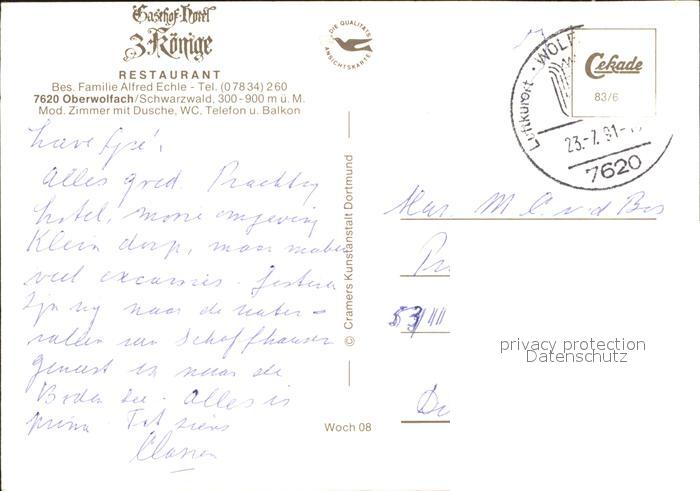 Gasthof-Hotel
3 Könige
RESTAURANT
Bes. Familie Alfred Echle - Tel. (0 78 34) 2 60
7620 Oberwolfach/Schwarzwald, 300-900 m ü. M.
Mod. Zimmer mit Dusche, WC, Telefon u. Balkon
DIE QUALITÄTS ANSICHTSKARTE
Luftkurort · WOLF
23.-7. 81-1
7620
Cekade
83/6
Alles goed. Prachtig
hotel, mooie omgeving
Klein dorp, maar maken
veel excursies. Gisteren
zijn wij naar de water-
vallen van Schaffhausen
geweest en naar de
Boden See. Alles is
prima. Tot ziens
© Cramers Kunstanstalt Dortmund
Woch 08
M C v d Bos
53
privacy protection
Datenschutz